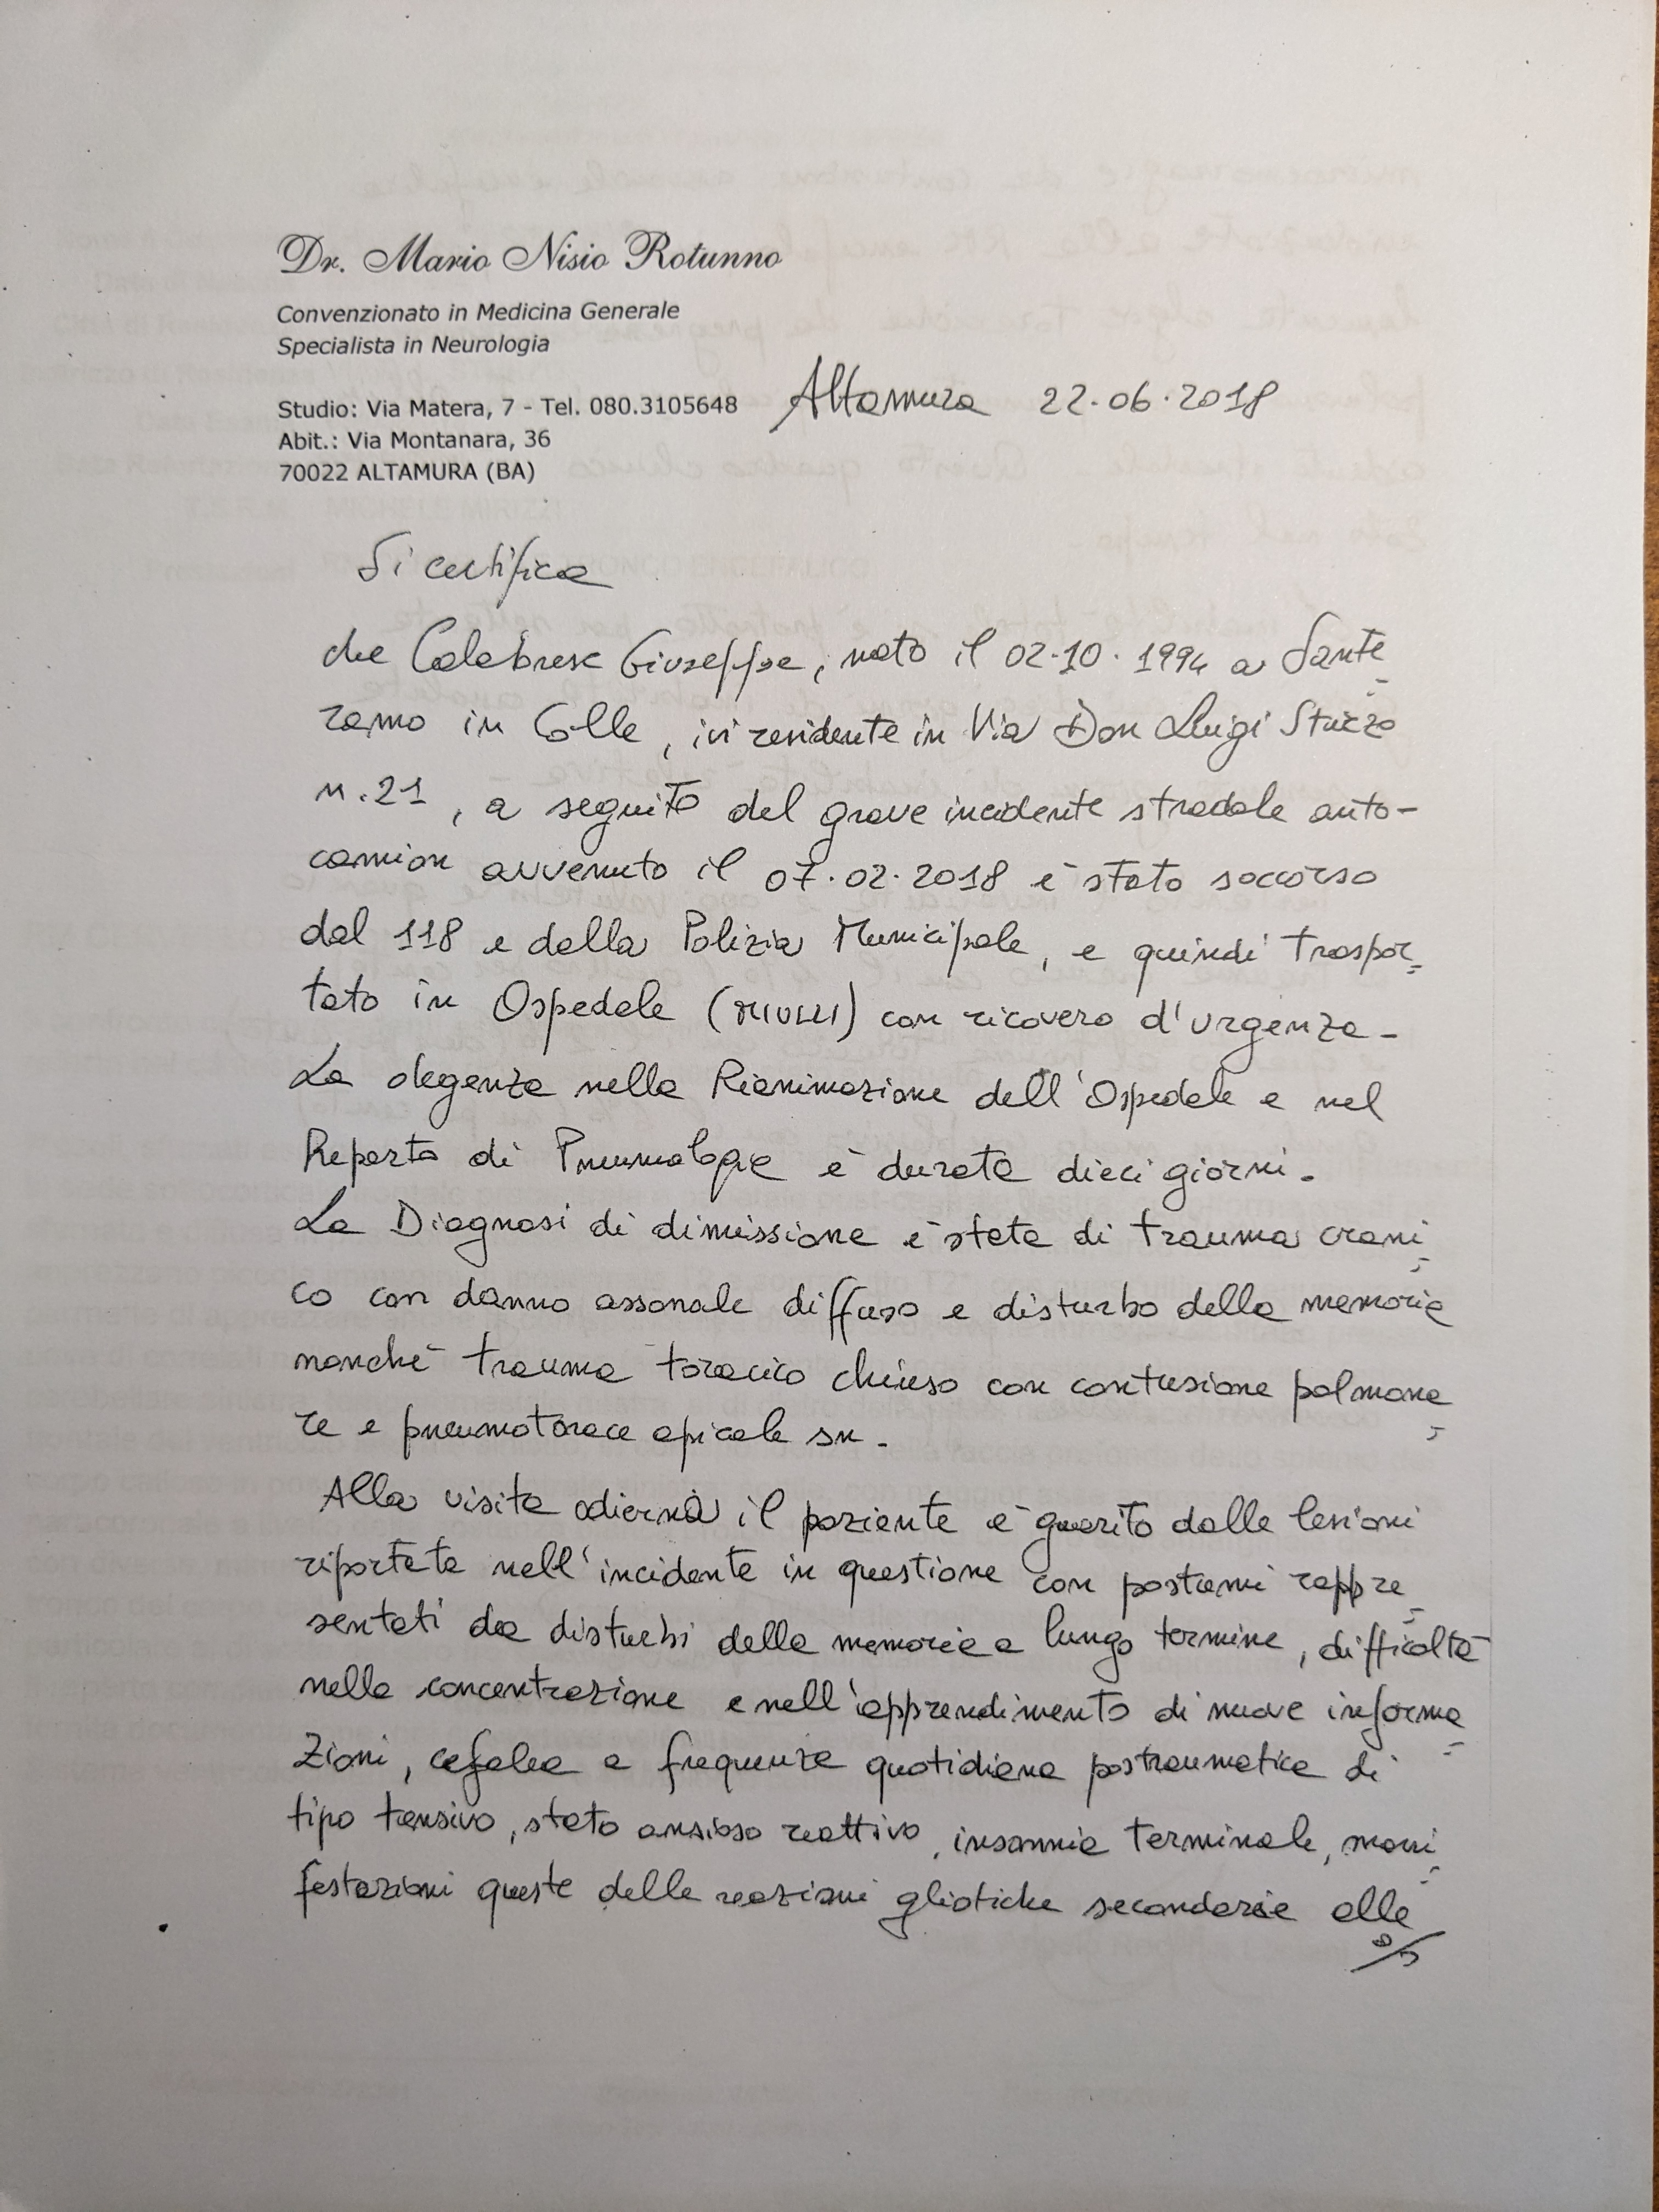 Dr. Mario Nisio Rotunno
Convenzionato in Medicina Generale
Specialista in Neurologia
Studio: Via Matera, 7 - Tel. 080.3105648
Altamura 22.06.2018
Abit.: Via Montanara, 36
70022 ALTAMURA (BA)
Si certifica
che Calabrese Giuseppe, nato il 02.10.1994 a Sante
ramo in Colle, ivi residente in Via Don Luigi Sturzo
n.21, a seguito del grave incidente stradale auto-
camion avvenuto il 07.02.2018 è stato soccorso
dal 118 e dalla Polizia Municipale, e quindi traspor=
tato in Ospedale (MIULLI) con ricovero d'urgenza-
La degenza nella Rianimazione dell'Ospedale e nel
Reparto di Pneumologia è durata dieci giorni.
La Diagnosi di dimissione è stata di trauma crani=
co con danno assonale diffuso e disturbo della memoria
nonchè trauma toracico chiuso con contusione polmona=
re e pneumotorace apicale sn.
Alla visita odierna il paziente è guarito dalle lesioni
riportate nell'incidente in questione con postumi rappre=
sentati da disturbi della memoria a lungo termine, difficoltà
nella concentrazione e nell'apprendimento di nuove informa=
zioni, cefalea a frequenza quotidiana postraumatica di
tipo tensivo, stato ansioso reattivo, insonnia terminale, mani=
festazioni queste delle reazioni gliotiche secondarie alle